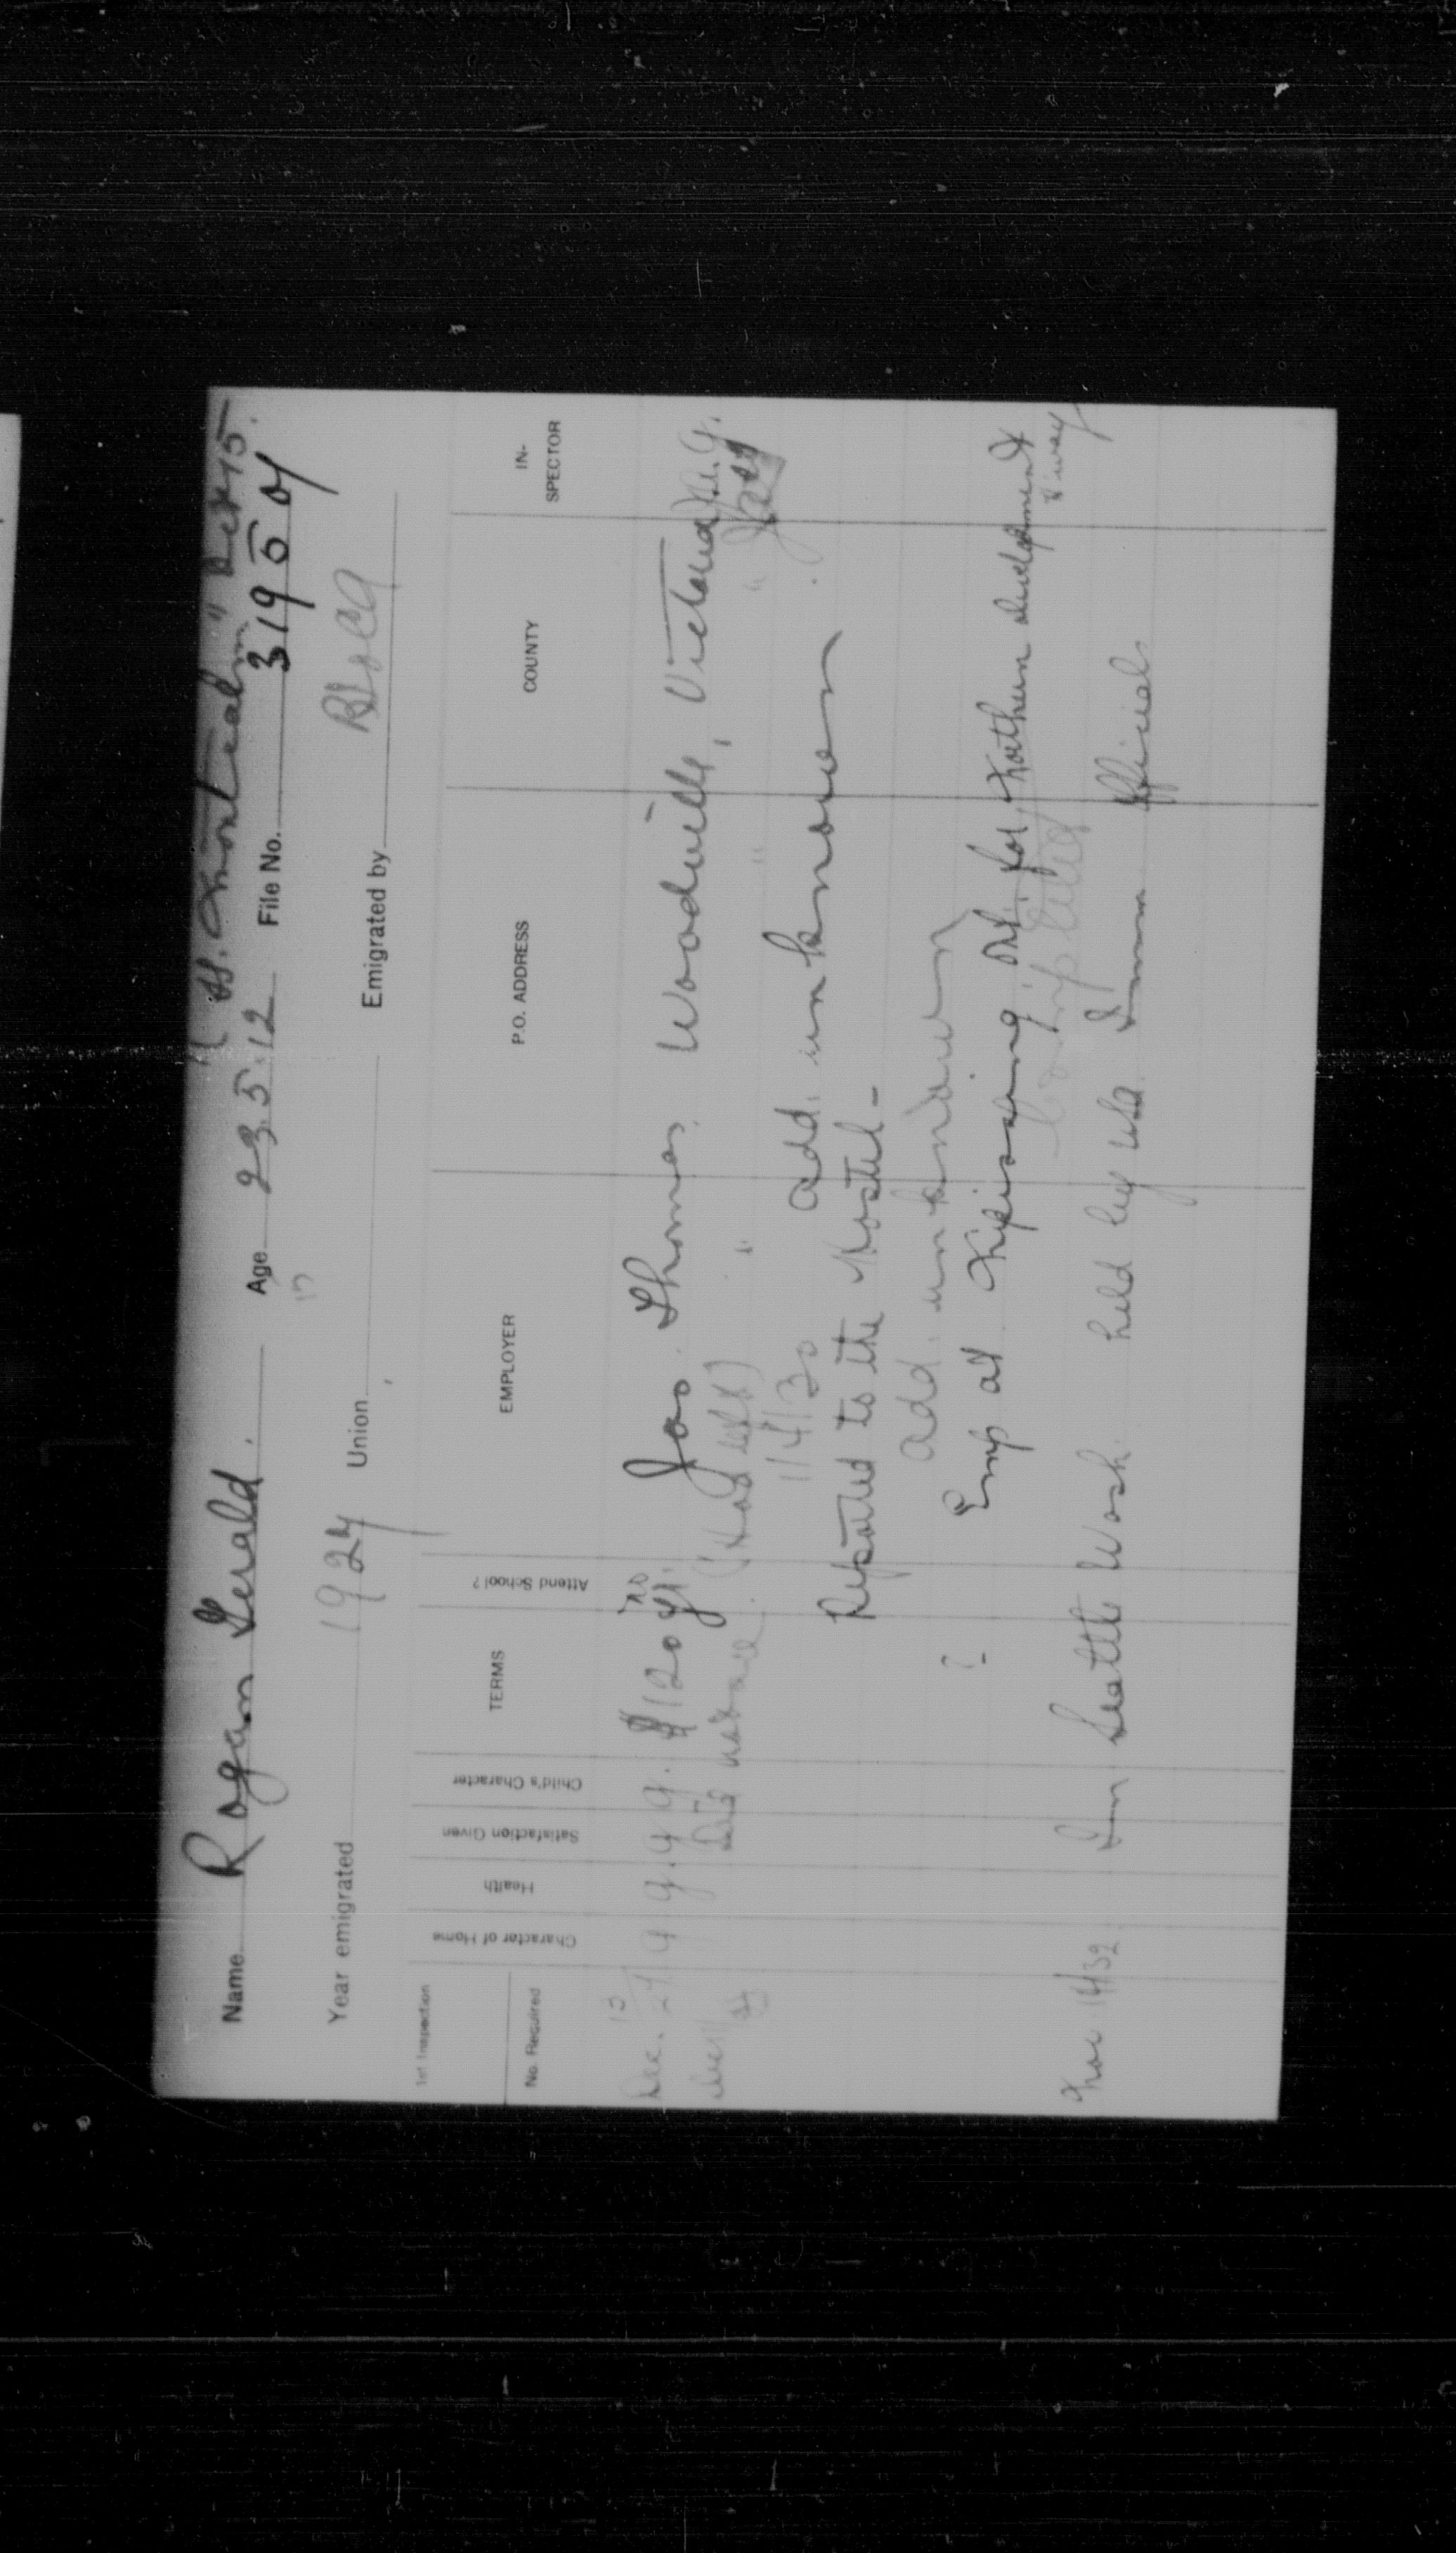 "Montcalm" Sept 5.
Name Rogan Gerald. Age 23.5.12 File No. 31907
17
Year emigrated 1927 Union Emigrated by
1st Inspection
No. Required
Character of Home
Health
Satisfaction Given
Child's Character
TERMS
Attend School?
EMPLOYER
P.O. ADDRESS
COUNTY
IN-
SPECTOR
Dec. g g. g g. $120 yr. no Jas. Thomas, Woodville, Victoria
(Had left) " " "
1/4/30 add. unknown
Reported to the Hostel -
add. unknown
? Emp at Kapuskasing Ont. for Northern development
H'way
Nov 14/32 In Seattle Wash. held by USA Imm officials